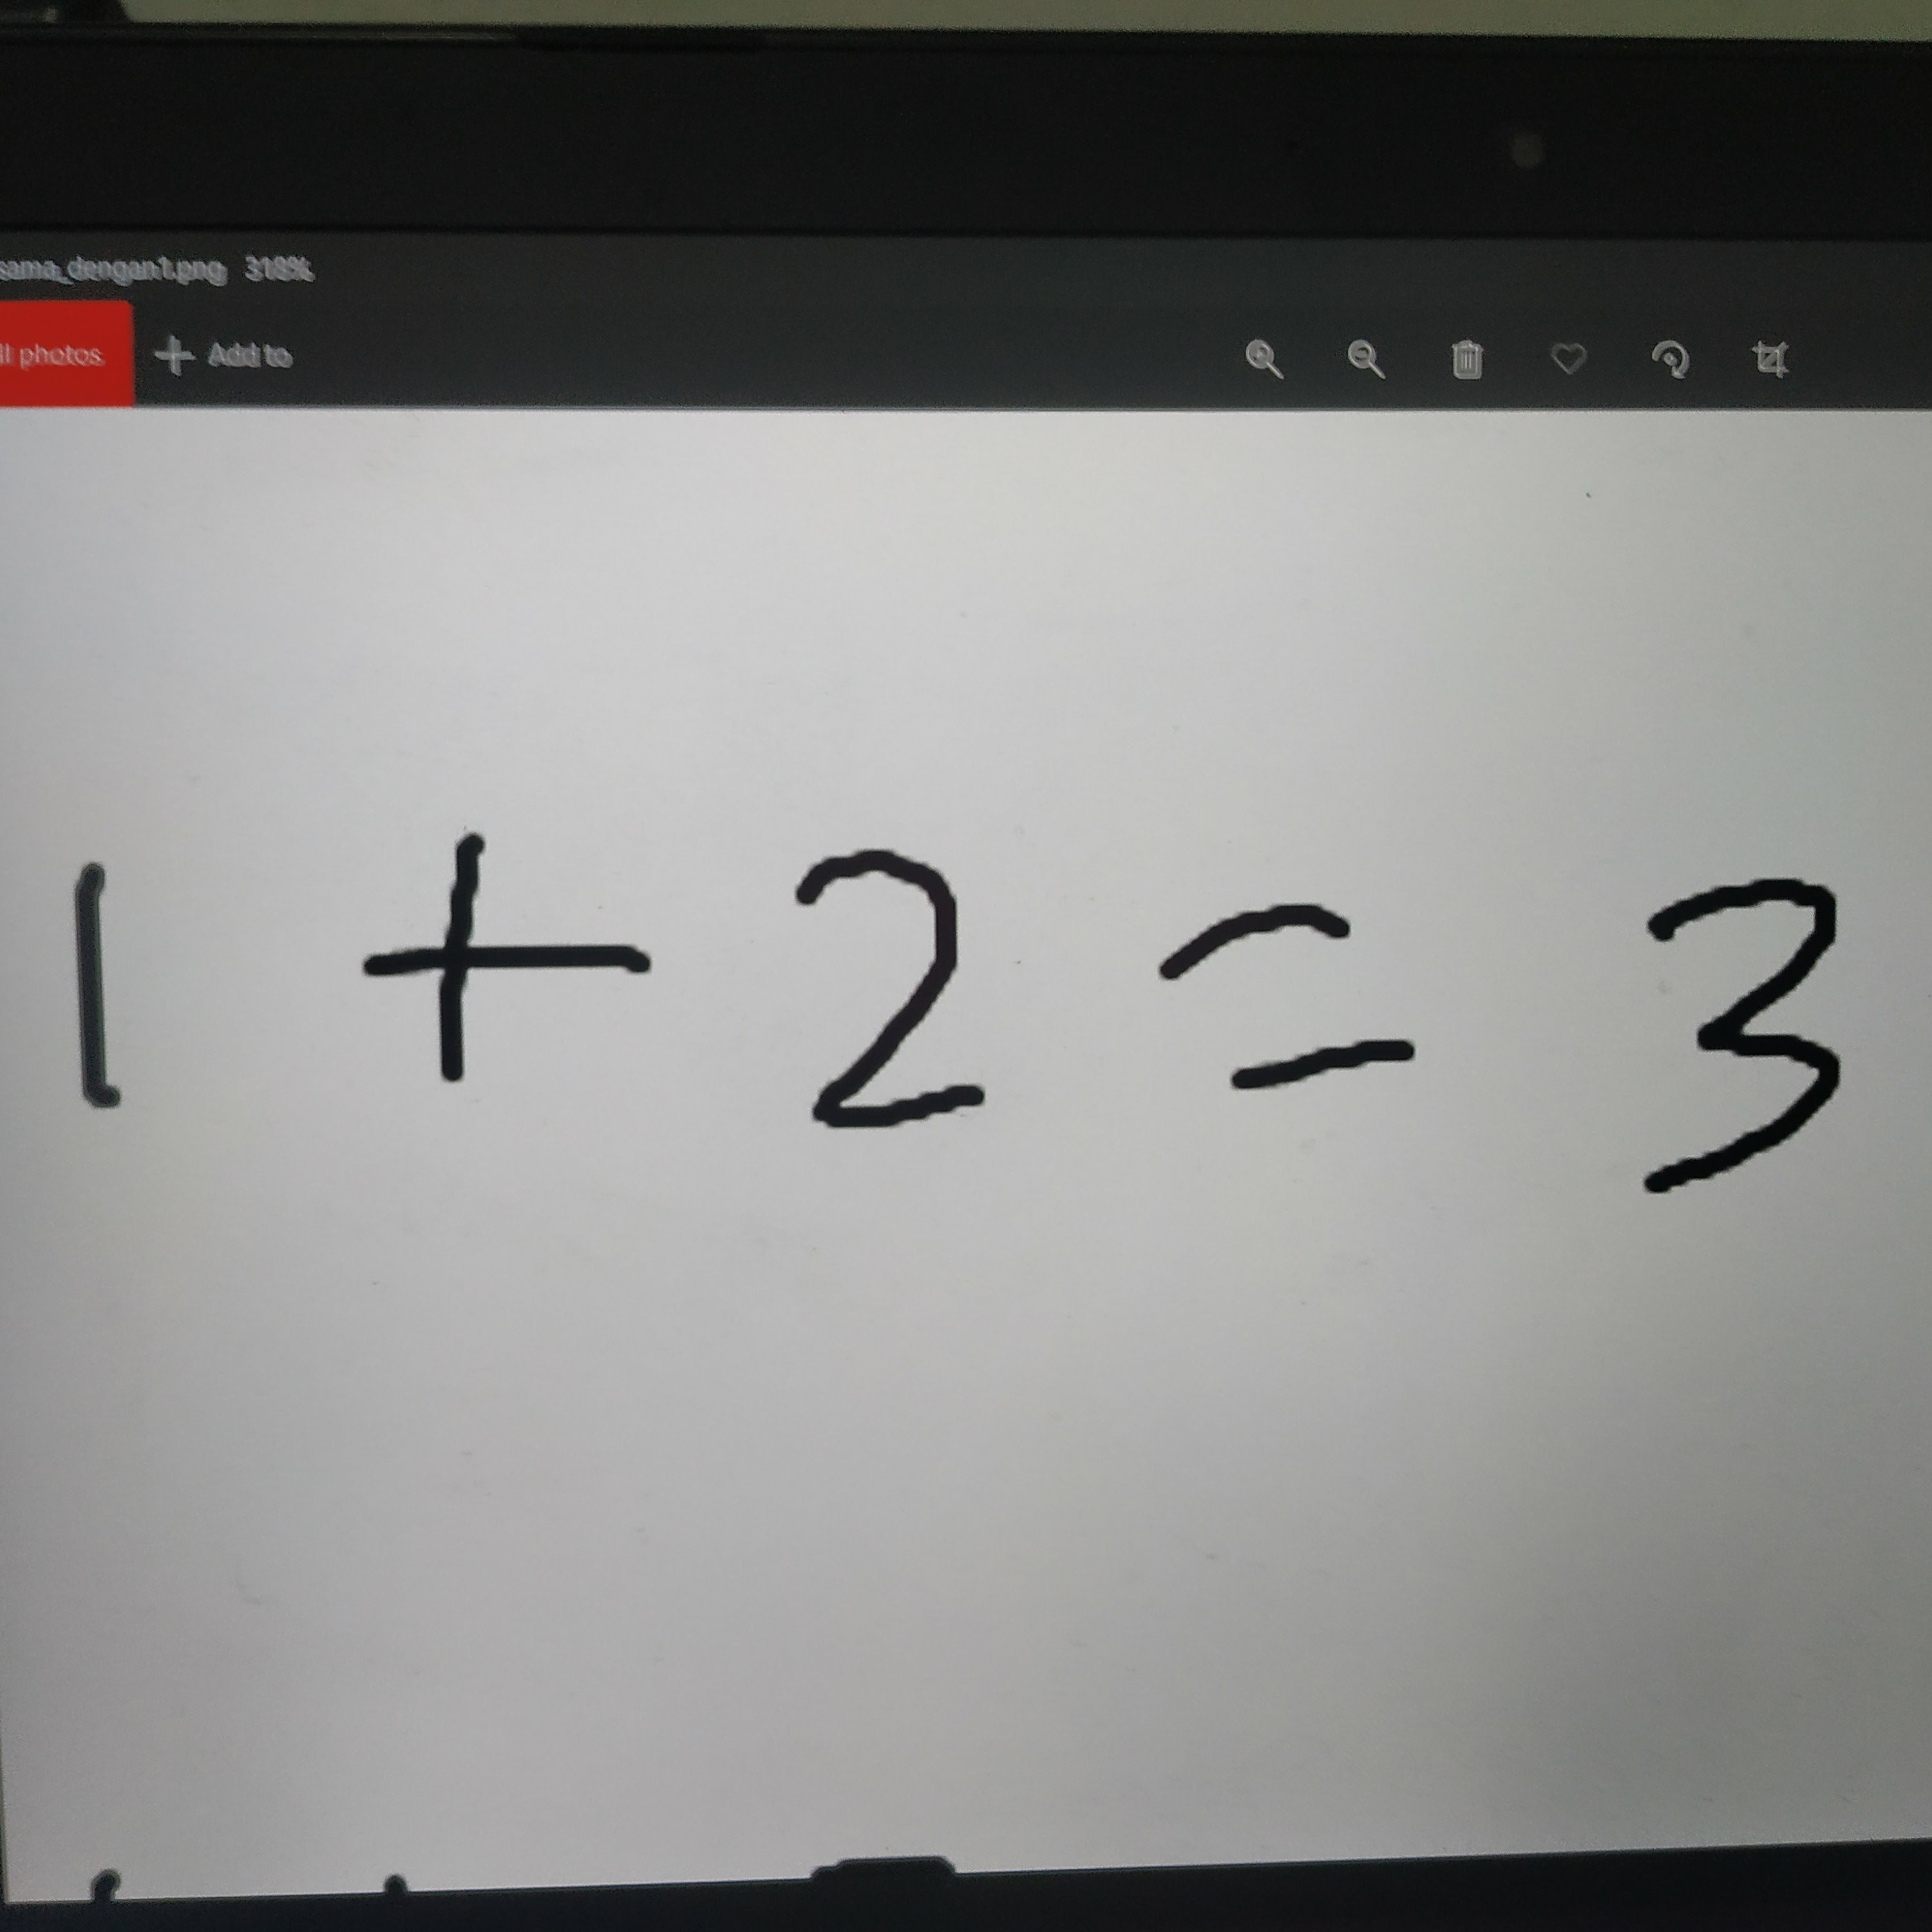 sama_dengan1.png 318%
ll photos Add to
1 + 2 = 3